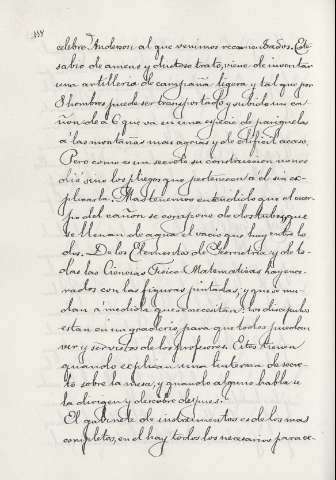 118
celebre Anderson al que venimos recomendados. Este
sabio de ameno y chistoso trato, viene de inventar
una artilleria de campaña ligera y tal que por
8 hombres puede ser transportado y subido un ca-
ñon de á 6 que va en una especie de pariguelas
á las montañas mas agrias y de dificil acceso.
Pero como es un secreto su construccion no nos
dió sino los pliegos que pertenecen a él sin ex-
plicarla. Mas tenemos entendido que el cuer-
po del cañon se compone de dos tubos, que
se llenan de agua el vacio que hay entre los
dos. De los Elementos de Geometria y de to-
das las Ciencias Fisico Matematicas hay ence-
rados con las figuras pintadas, y que mu-
dan á medida que necesitan; los discipulos
estan en una graderia, para que todos puedan
ver y ser vistos de los profesores. Estos tienen
quando explican una linterna de secre-
to sobre la mesa, y quando alguno habla se
la dirigen y descubre despues.
El gabinete de instrumentos es de los mas
completos, en el hay todos los necesarios para ex-